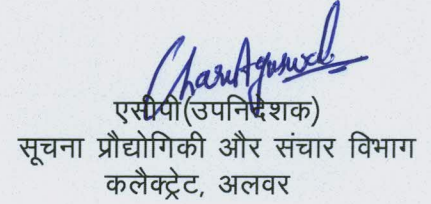 Charu Agarwal
एसीपी(उपनिदेशक)
सूचना प्रौद्योगिकी और संचार विभाग
कलैक्ट्रेट, अलवर